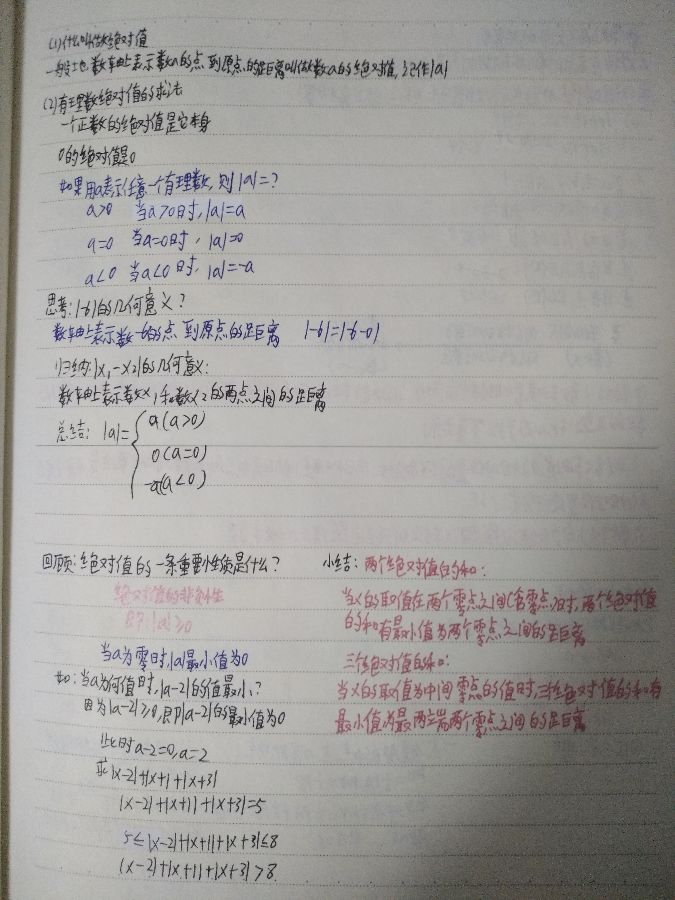 (1)什么叫做绝对值
一般地,数轴上表示数a的点到原点的距离叫做数a的绝对值,记作|a|
(2)有理数绝对值的求法
一个正数的绝对值是它本身
0的绝对值是0
如果用a表示任意一个有理数,则|a|=?
a>0 当a>0时,|a|=a
a=0 当a=0时,|a|=0
a<0 当a<0时,|a|=-a
思考:|-6|的几何意义?
数轴上表示数-6的点到原点的距离 |-6|=|-6-0|
归纳:|x₁-x₂|的几何意义:
数轴上表示数x₁和数x₂的两点之间的距离
总结: |a|=
a(a>0)
0(a=0)
-a(a<0)
回顾:绝对值的一条重要性质是什么?
绝对值的非负性
即:|a|≥0
当a为零时,|a|最小值为0
如:当a为何值时,|a-2|的值最小?
因为|a-2|≥0,即|a-2|的最小值为0
此时a-2=0,a=2
求|x-2|+|x+1|+|x+3|
|x-2|+|x+1|+|x+3|=5
5≤|x-2|+|x+1|+|x+3|≤8
|x-2|+|x+1|+|x+3|>8
小结:两个绝对值的和:
当x的取值在两个零点之间(含零点)时,两个绝对值
的和有最小值为两个零点之间的距离
三个绝对值的和:
当x的取值为中间零点的值时,三个绝对值的和有
最小值为最两端两个零点之间的距离